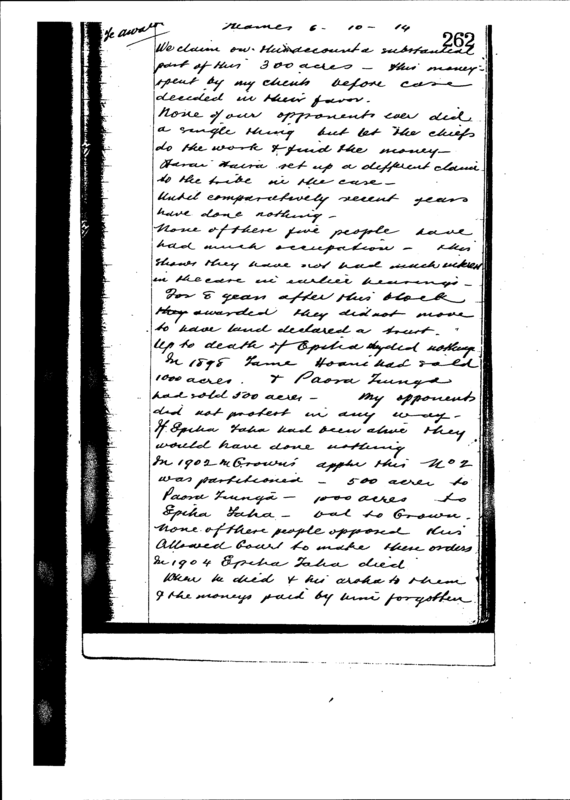 Te awa
Thames 6-10-14
262
We claim on this account a substantial
part of this 300 acres - this money
spent by my clients before case
decided in their favor.
None of our opponents ever did
a single thing but let the chiefs
do the work & find the money-
Harai set up a different claim
to the tribe in the case-
Until comparatively recent years
have done nothing-
None of these five people have
had much occupation - this
shows they have not had much interest
in the case in earlier hearings-
For 8 years after this block
they awarded they did not move
to have land declared a trust.
Up to death of Epiha they did nothing
In 1898 Tame Hoani had sold
1000 acres. & Paora Tiunga
had sold 500 acres - My opponents
did not protest in any way-
If Epiha Taha had been alive they
would have done nothing
In 1902 on Crown's appln this No 2
was partitioned - 500 acres to
Paora Tiunga - 1000 acres to
Epiha Taha - bal to Crown.
None of these people opposed this
Allowed Court to make these orders
In 1904 Epiha Taha died
When he died & his aroha to them
& the moneys paid by him forgotten